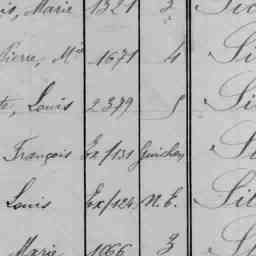 is, Marie 1321 3
Pierre, Me 1671 4 Si
te, Louis 2379 5 Si
François Ex/131 Guichen S
Louis Ex/124 N. E. Sil
Marie 1066 3